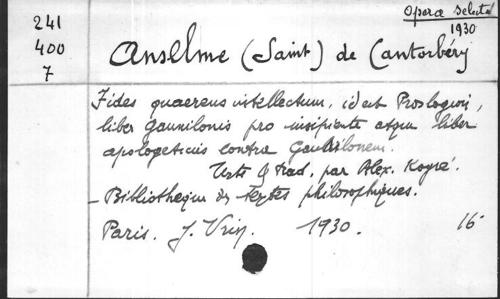 241
400
7
Opera selecta
1930
Anselme (Saint) de Cantorbéry
Fides quaerens intellectum, id est Proslogion,
liber Gaunilonis pro insipiente atque liber
apologeticus contra Gaunilonem.
Texte & trad. par Alex. Koyré.
- Bibliothèque des textes philosophiques.
Paris. J. Vrin. 1930. 16°